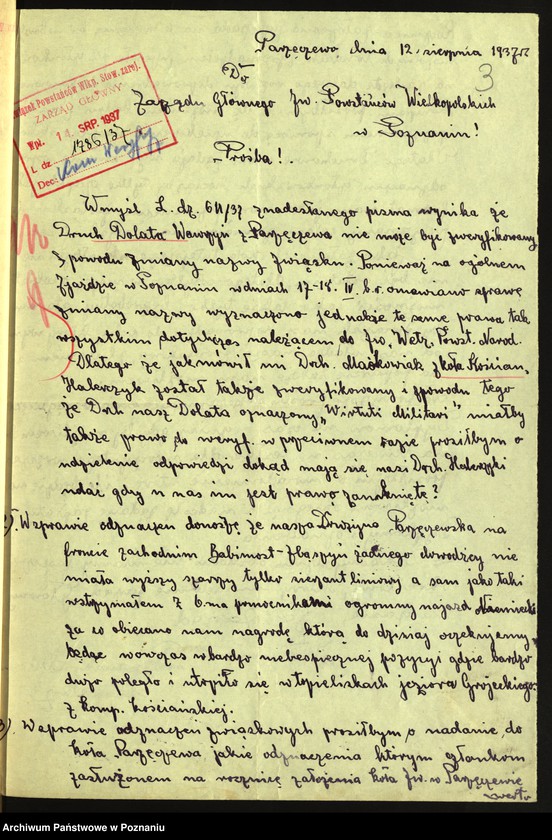 Parzęczewo dnia 12, sierpnia 1937 r.
3
Do
Związek Powstańców Wlkp. Stow. zarej.
ZARZĄD GŁÓWNY
Wpł. 14 SRP. 1937
L. dz. 1286/37
Dec:
Zarządu Głównego Zw. Powstańców Wielkopolskich
w Poznaniu!
Prośba!.
Wmyśl L. dz. 611/37 znadesłanego pisma wynika że
Druch Dolata Wawrzyn z Parzęczewa nie może być zweryfikowany
z powodu zmiany nazwy związku. Ponieważ na ogólnem
zjeździe w Poznaniu wdniach 17-18. IV. b.r. omawiano sprawę
zmiany nazwy wyznaczono jednakże te same prawa tak
wszystkim dotychczas należącem do Zw. Wet. Powst. Narod.
Dlatego że jak mówił mi Drh. Maćkowiak z koła Kościan,
Halerczyk został także zweryfikowany i spowodu tego
że Drh nasz Dolata oznaczony „Wirtuti Militari" miałby
także prawo do weryf. w przeciwnem razie prosiłbym o
udzielenie odpowiedzi dokąd mają się nasi Drh. Halerczyki
udać gdy u nas im jest prawo zamknięte?
2). W sprawie odznaczen donoszę że nasza Drużyna Parzęczewska na
froncie zachodnim Babimost-Zbąszyń żadnego dowodzcy nie
miała wyższy szarzy tylko sierżant liniowy a sam jako taki
wstrzymałem z 6-ma pomocnikami ogromny najazd Niemiecki
za co obiecano nam nagrodę którą do dzisiaj oczekujemy
będąc wówczas wbardzo niebezpiecznej pozycji gdzie bardzo
dużo poległo i utopiło się w topieliskach jeziora Grójeckiego
z komp. kościańskiej.
3). W sprawie odznaczen związkowych prosiłbym o nadanie do
koła Parzęczewa jakie odznaczenia którym członkom
zasłużonem na rocznicę założenia koła Zw. w Parzęczewie
verte
Archiwum Państwowe w Poznaniu